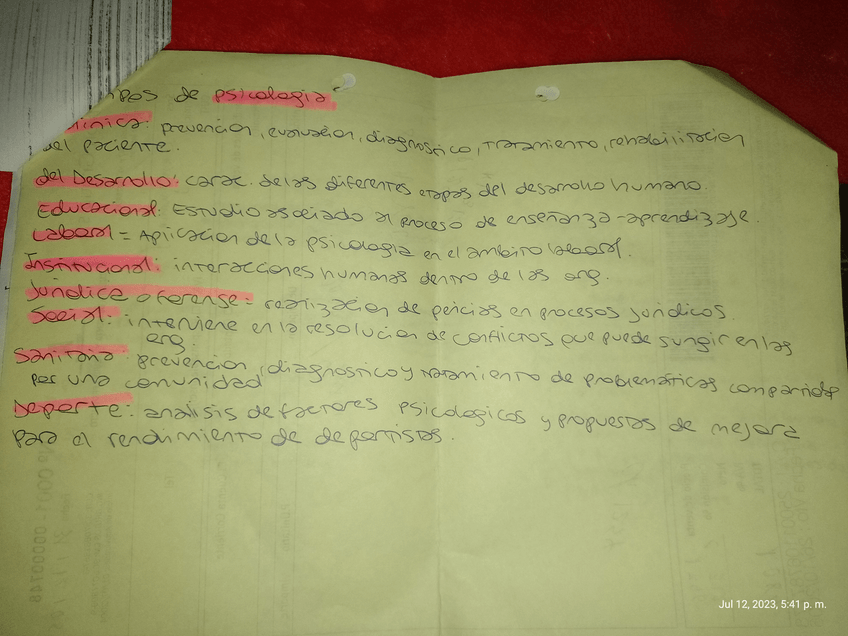 ipos de psicologia
Clinica: prevencion, evaluacion, diagnostico, tratamiento, rehabilitacion
del paciente.
del Desarrollo: carac. de las diferentes etapas del desarrollo humano.
Educacional: Estudio asociado al proceso de enseñanza-aprendizaje.
Laboral = Aplicacion de la psicologia en el ambito laboral.
Institucional: interacciones humanas dentro de las org.
Juridica o forense = realizacion de pericias en procesos juridicos.
Social: interviene en la resolucion de conflictos que puede surgir en las
org.
Sanitaria prevencion, diagnostico y tratamiento de problemáticas compartidas
por una comunidad
Deporte: analisis de factores psicologicos y propuestas de mejora
para el rendimiento de deportistas.
Jul 12, 2023, 5:41 p. m.